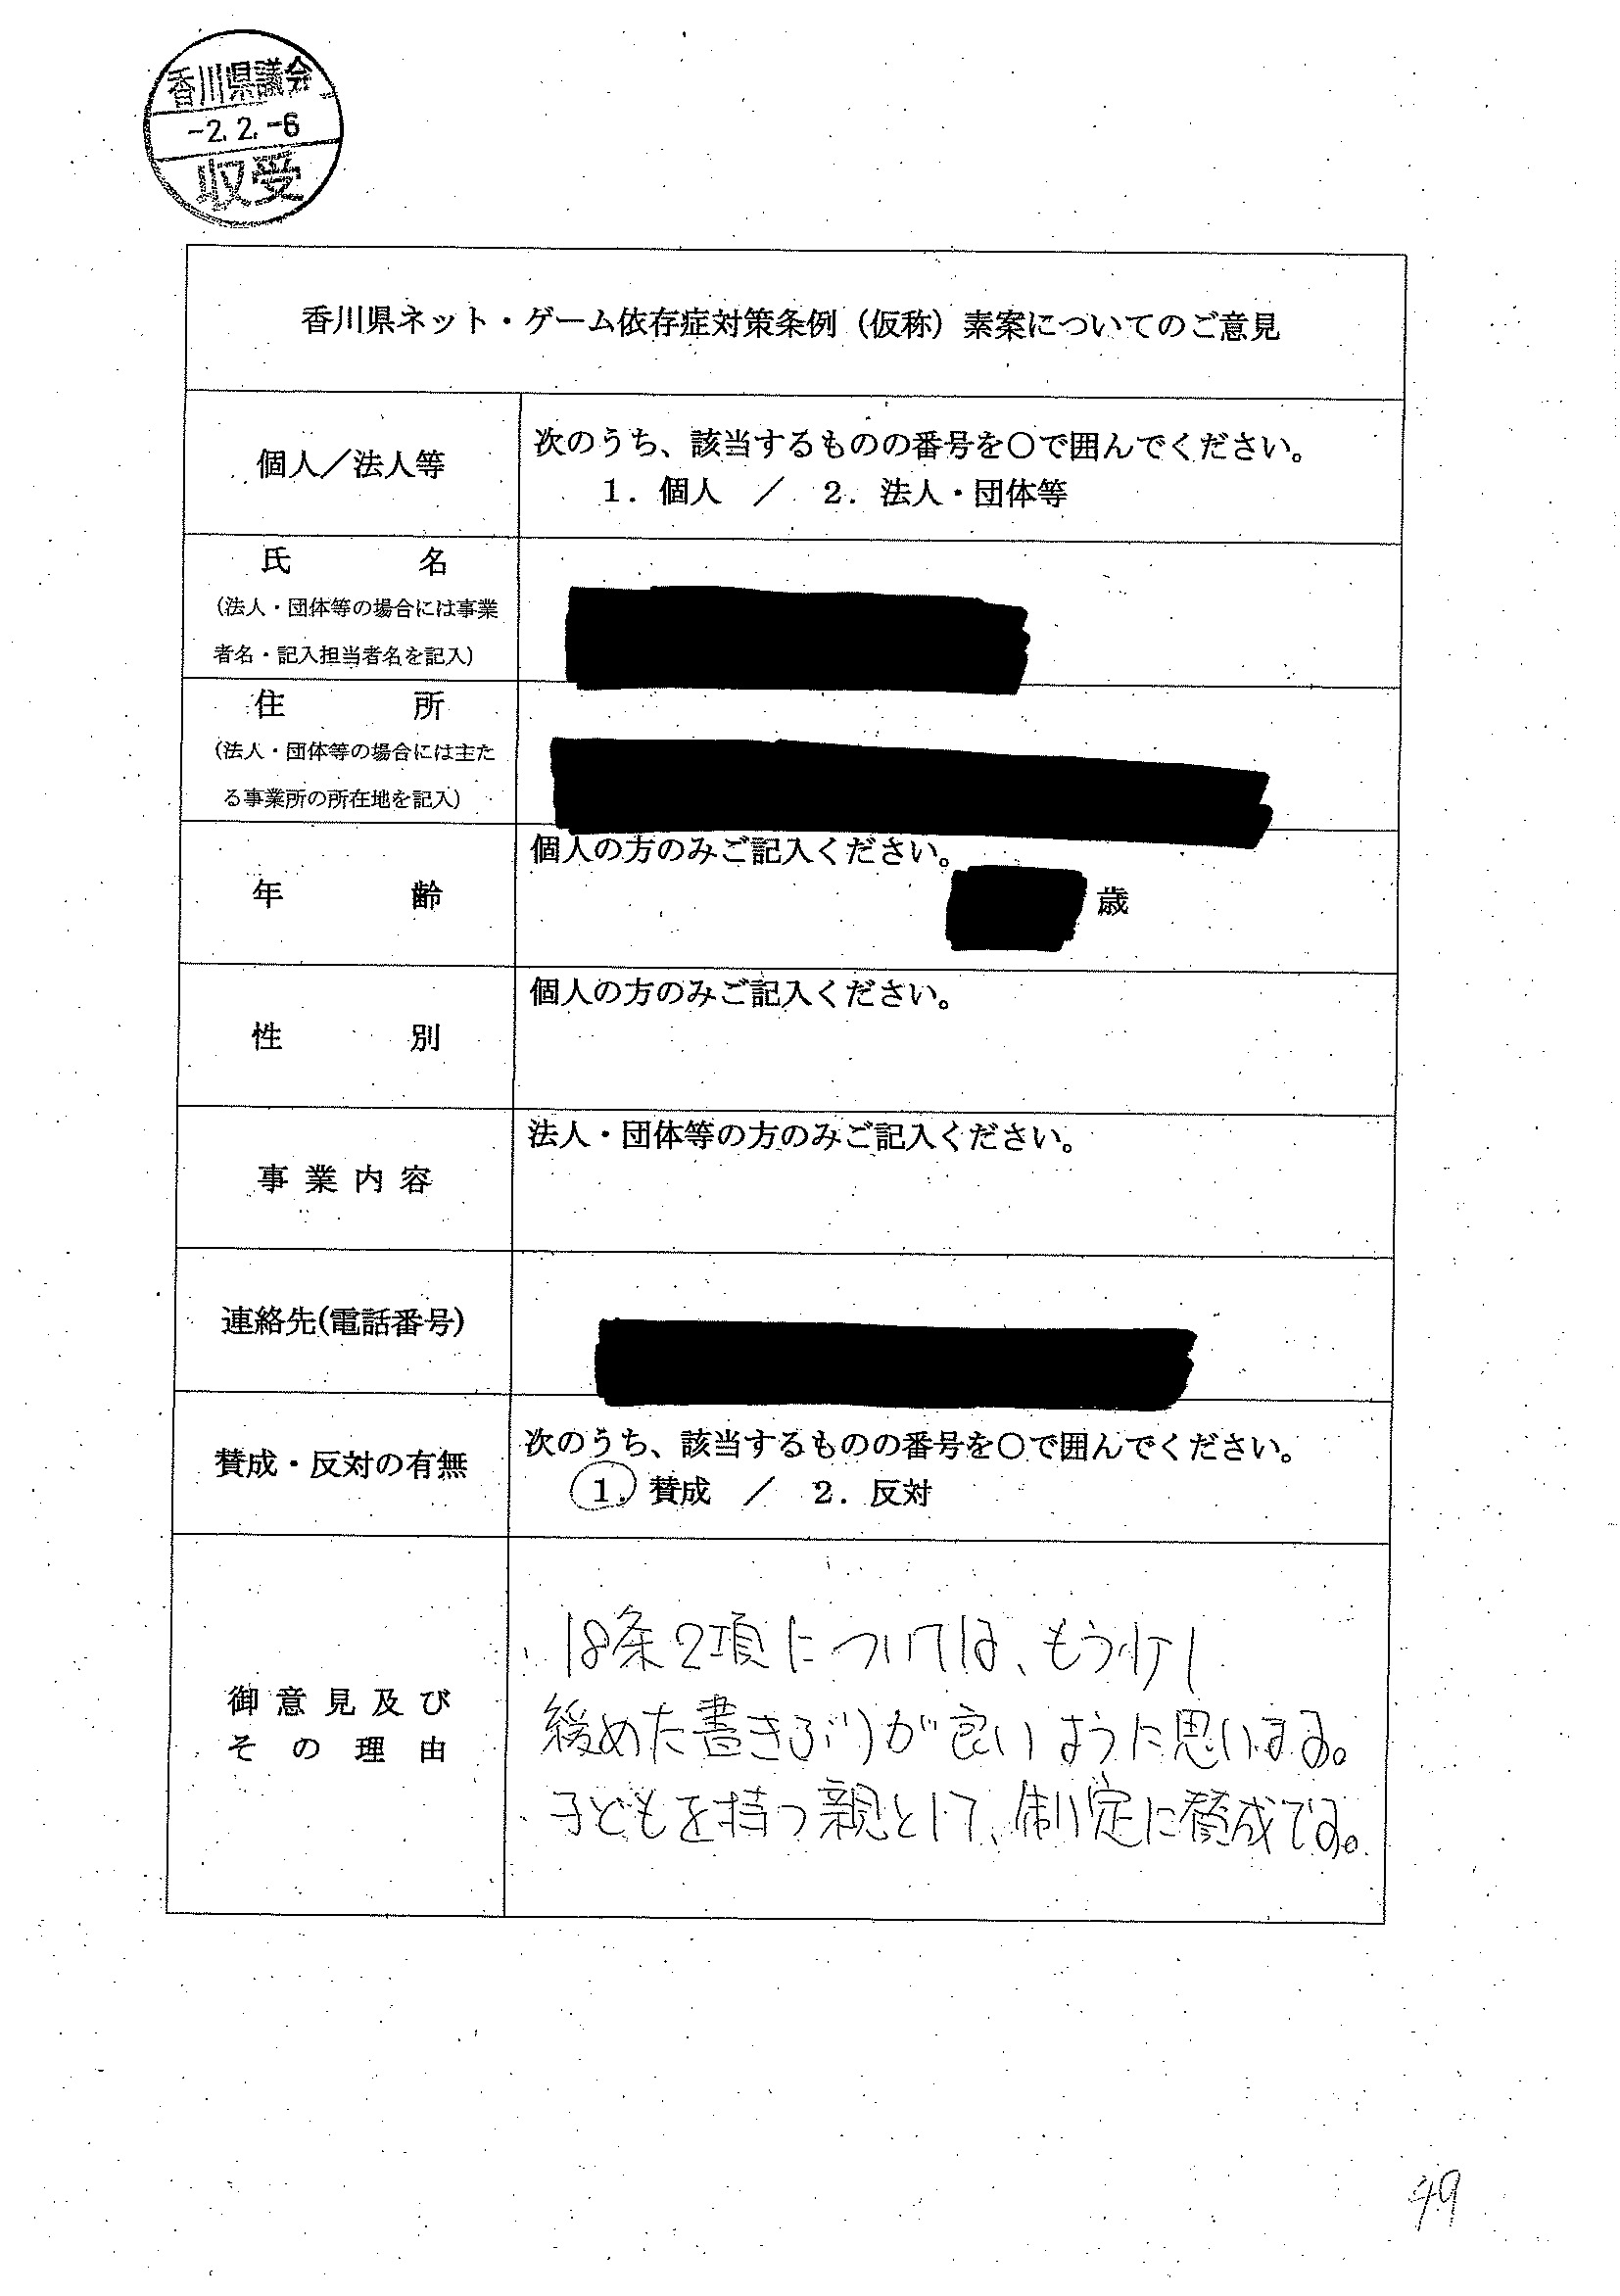 香川県議会
-2.2.-6
収受
香川県ネット・ゲーム依存症対策条例（仮称）素案についてのご意見
個人／法人等
次のうち、該当するものの番号を○で囲んでください。
1．個人 ／ 2．法人・団体等
氏名
（法人・団体等の場合には事業
者名・記入担当者名を記入）
住所
（法人・団体等の場合には主た
る事業所の所在地を記入）
年齢
個人の方のみご記入ください。
歳
性別
個人の方のみご記入ください。
事業内容
法人・団体等の方のみご記入ください。
連絡先(電話番号)
賛成・反対の有無
次のうち、該当するものの番号を○で囲んでください。
1．賛成 ／ 2．反対
御意見及び
その理由
18条2項については、もう少し
緩めた書きぶりが良いように思います。
子どもを持つ親として、制定に賛成です。
49